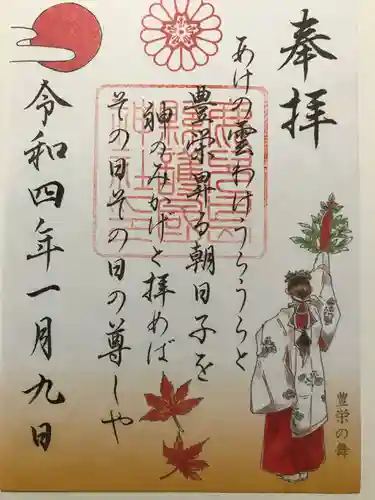 奉拝
あけの雲わけうらうらと
豊栄昇る朝日子を
神のみかげと拝めば
その日その日の尊しや
令和四年一月九日
豊栄の舞